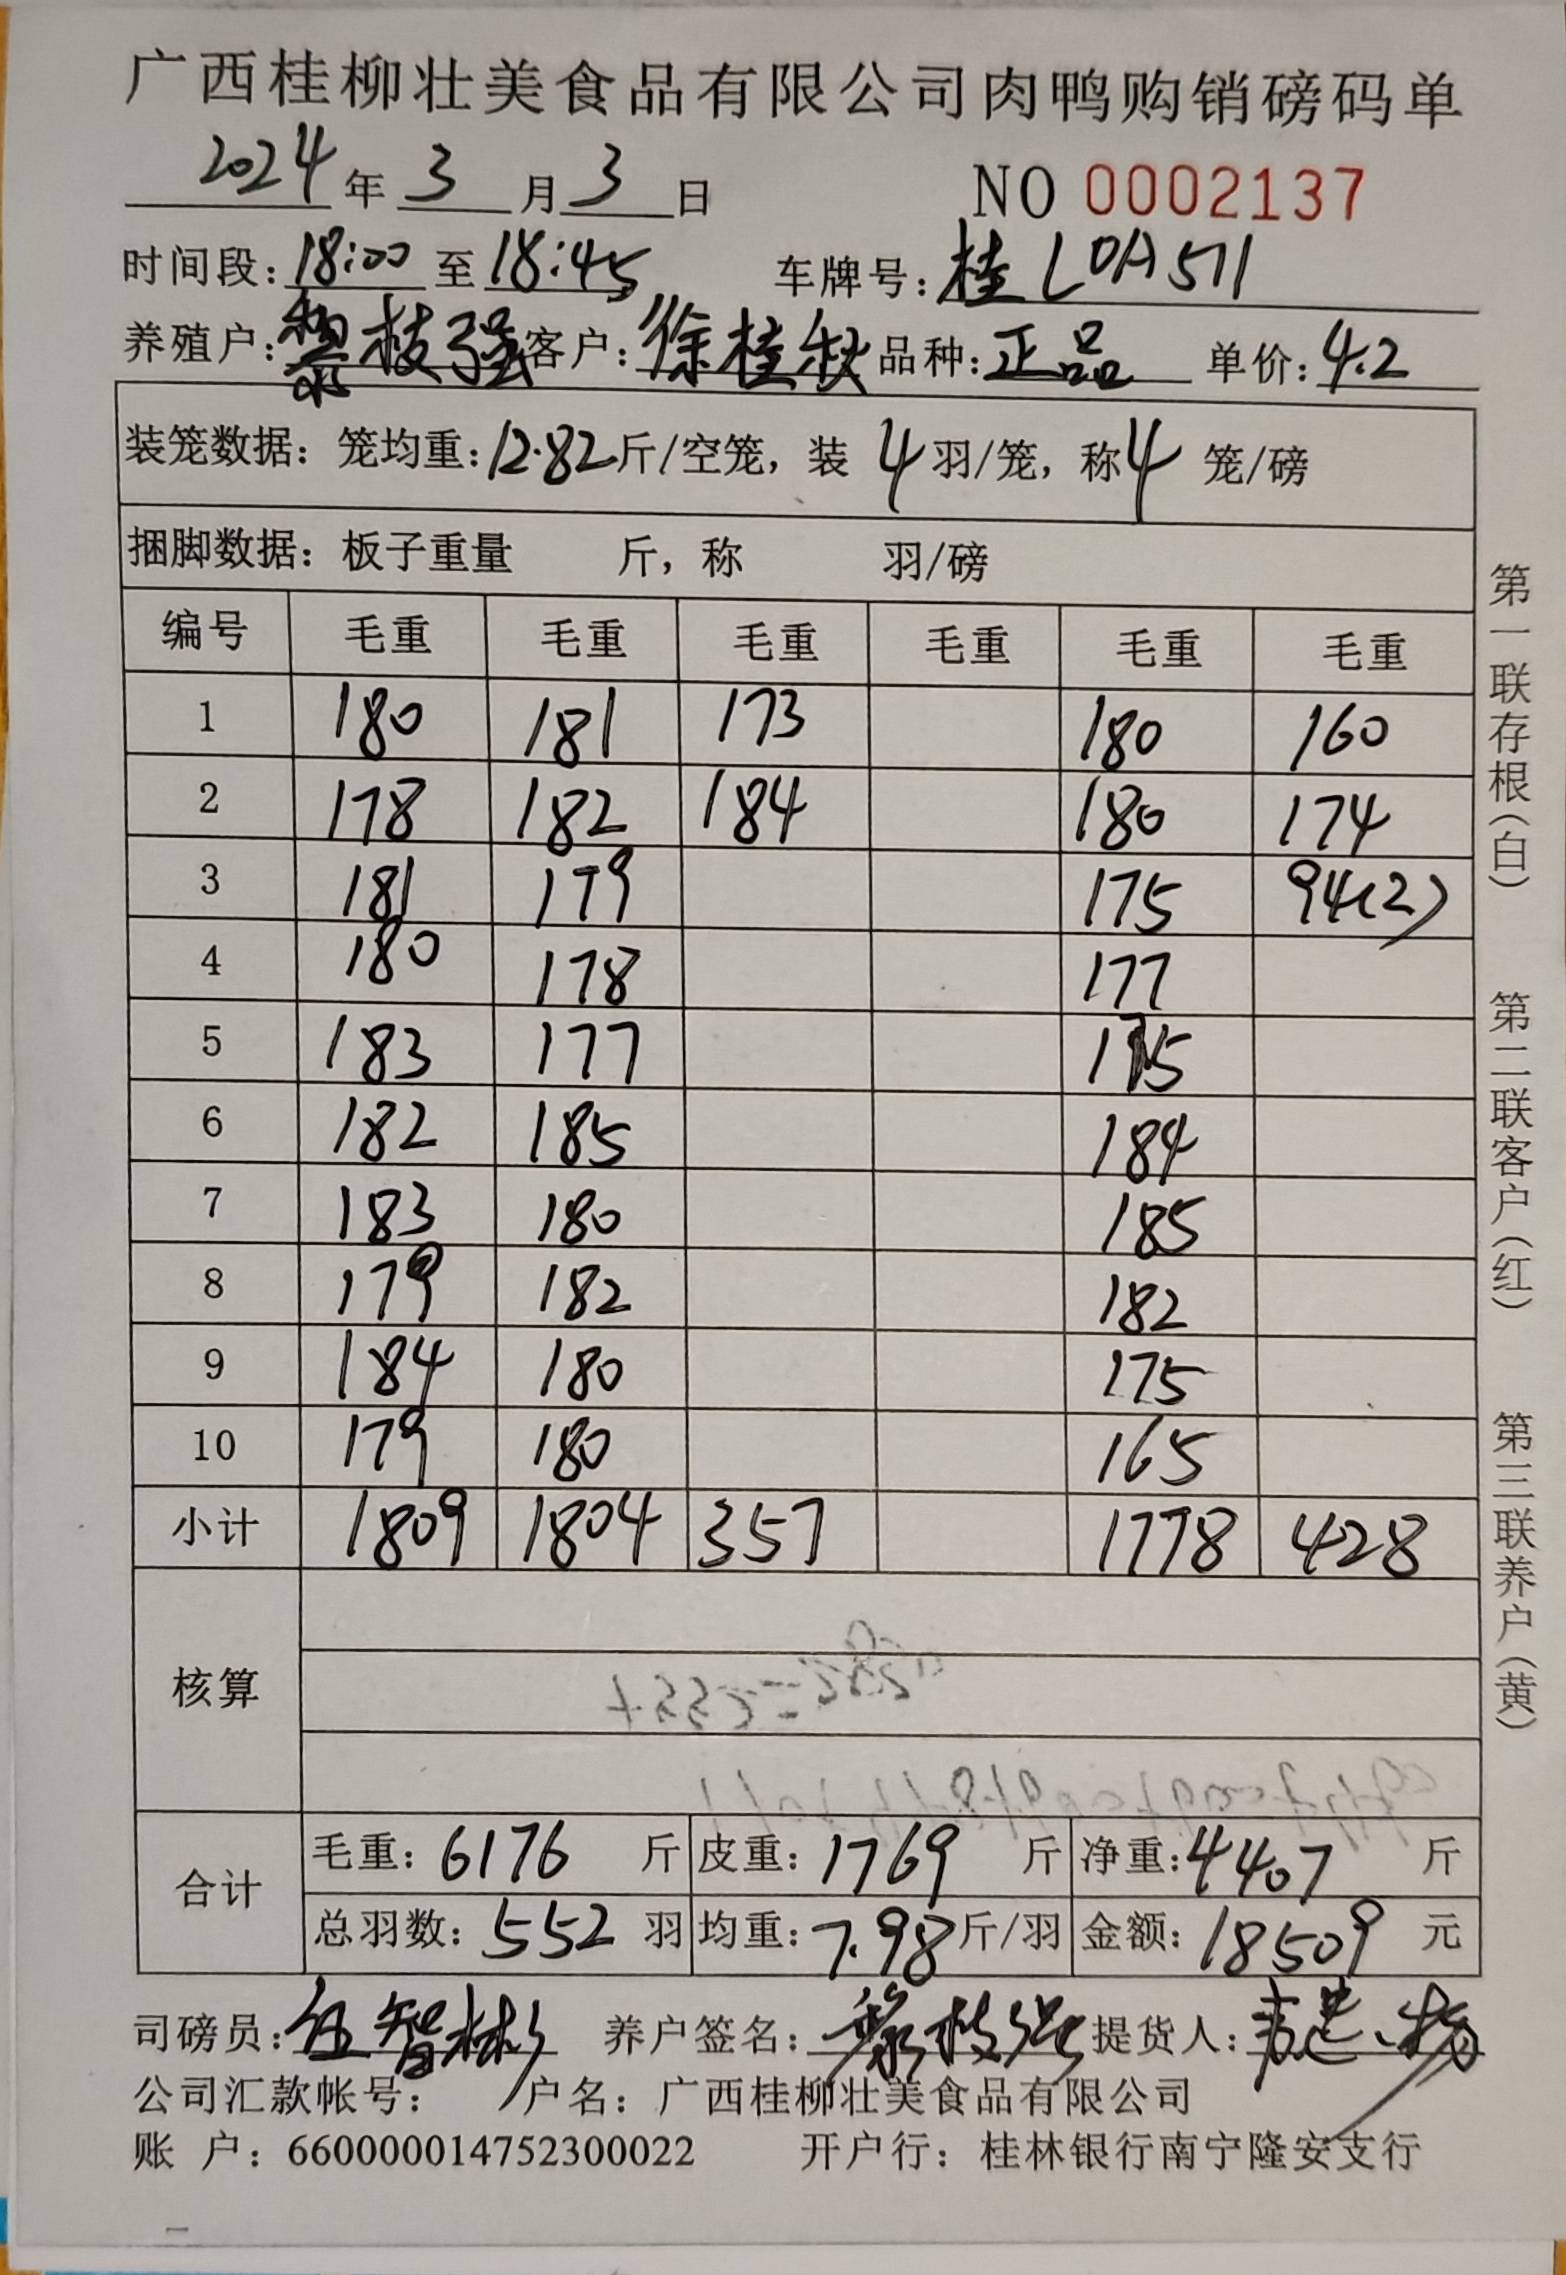 广西桂柳壮美食品有限公司肉鸭购销磅码单
2024年 3 月 3 日 NO 0002137
时间段:18:00 至 18:45 车牌号:桂L0A571
养殖户:黎枝强 客户:徐桂秋 品种:正品 单价:4.2
装笼数据:笼均重:12.82斤/空笼,装 4 羽/笼,称4 笼/磅
捆脚数据:板子重量 斤,称 羽/磅
编号 毛重 毛重 毛重 毛重 毛重 毛重
1 180 181 173 180 160
2 178 182 184 180 174
3 181 179 175 94(2)
4 180 178 177
5 183 177 175
6 182 185 184
7 183 180 185
8 179 182 182
9 184 180 175
10 179 180 165
小计 1809 1804 357 1778 428
核算
合计
毛重:6176 斤 皮重:1769 斤 净重:4407 斤
总羽数:552 羽 均重:7.98斤/羽 金额:18509 元
司磅员:伍智彬 养户签名:黎枝强 提货人:
公司汇款帐号: 户名:广西桂柳壮美食品有限公司
账 户:660000014752300022 开户行:桂林银行南宁隆安支行
第一联存根(白)
第二联客户(红)
第三联养户(黄)